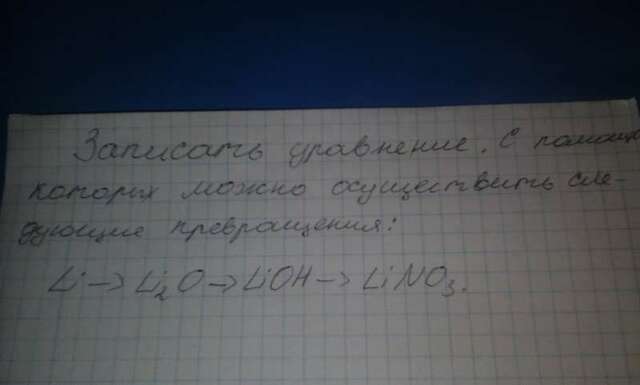 Записать уравнение, с помощью
которых можно осуществить сле-
дующие превращения:
Li → Li₂O → LiOH → LiNO₃.